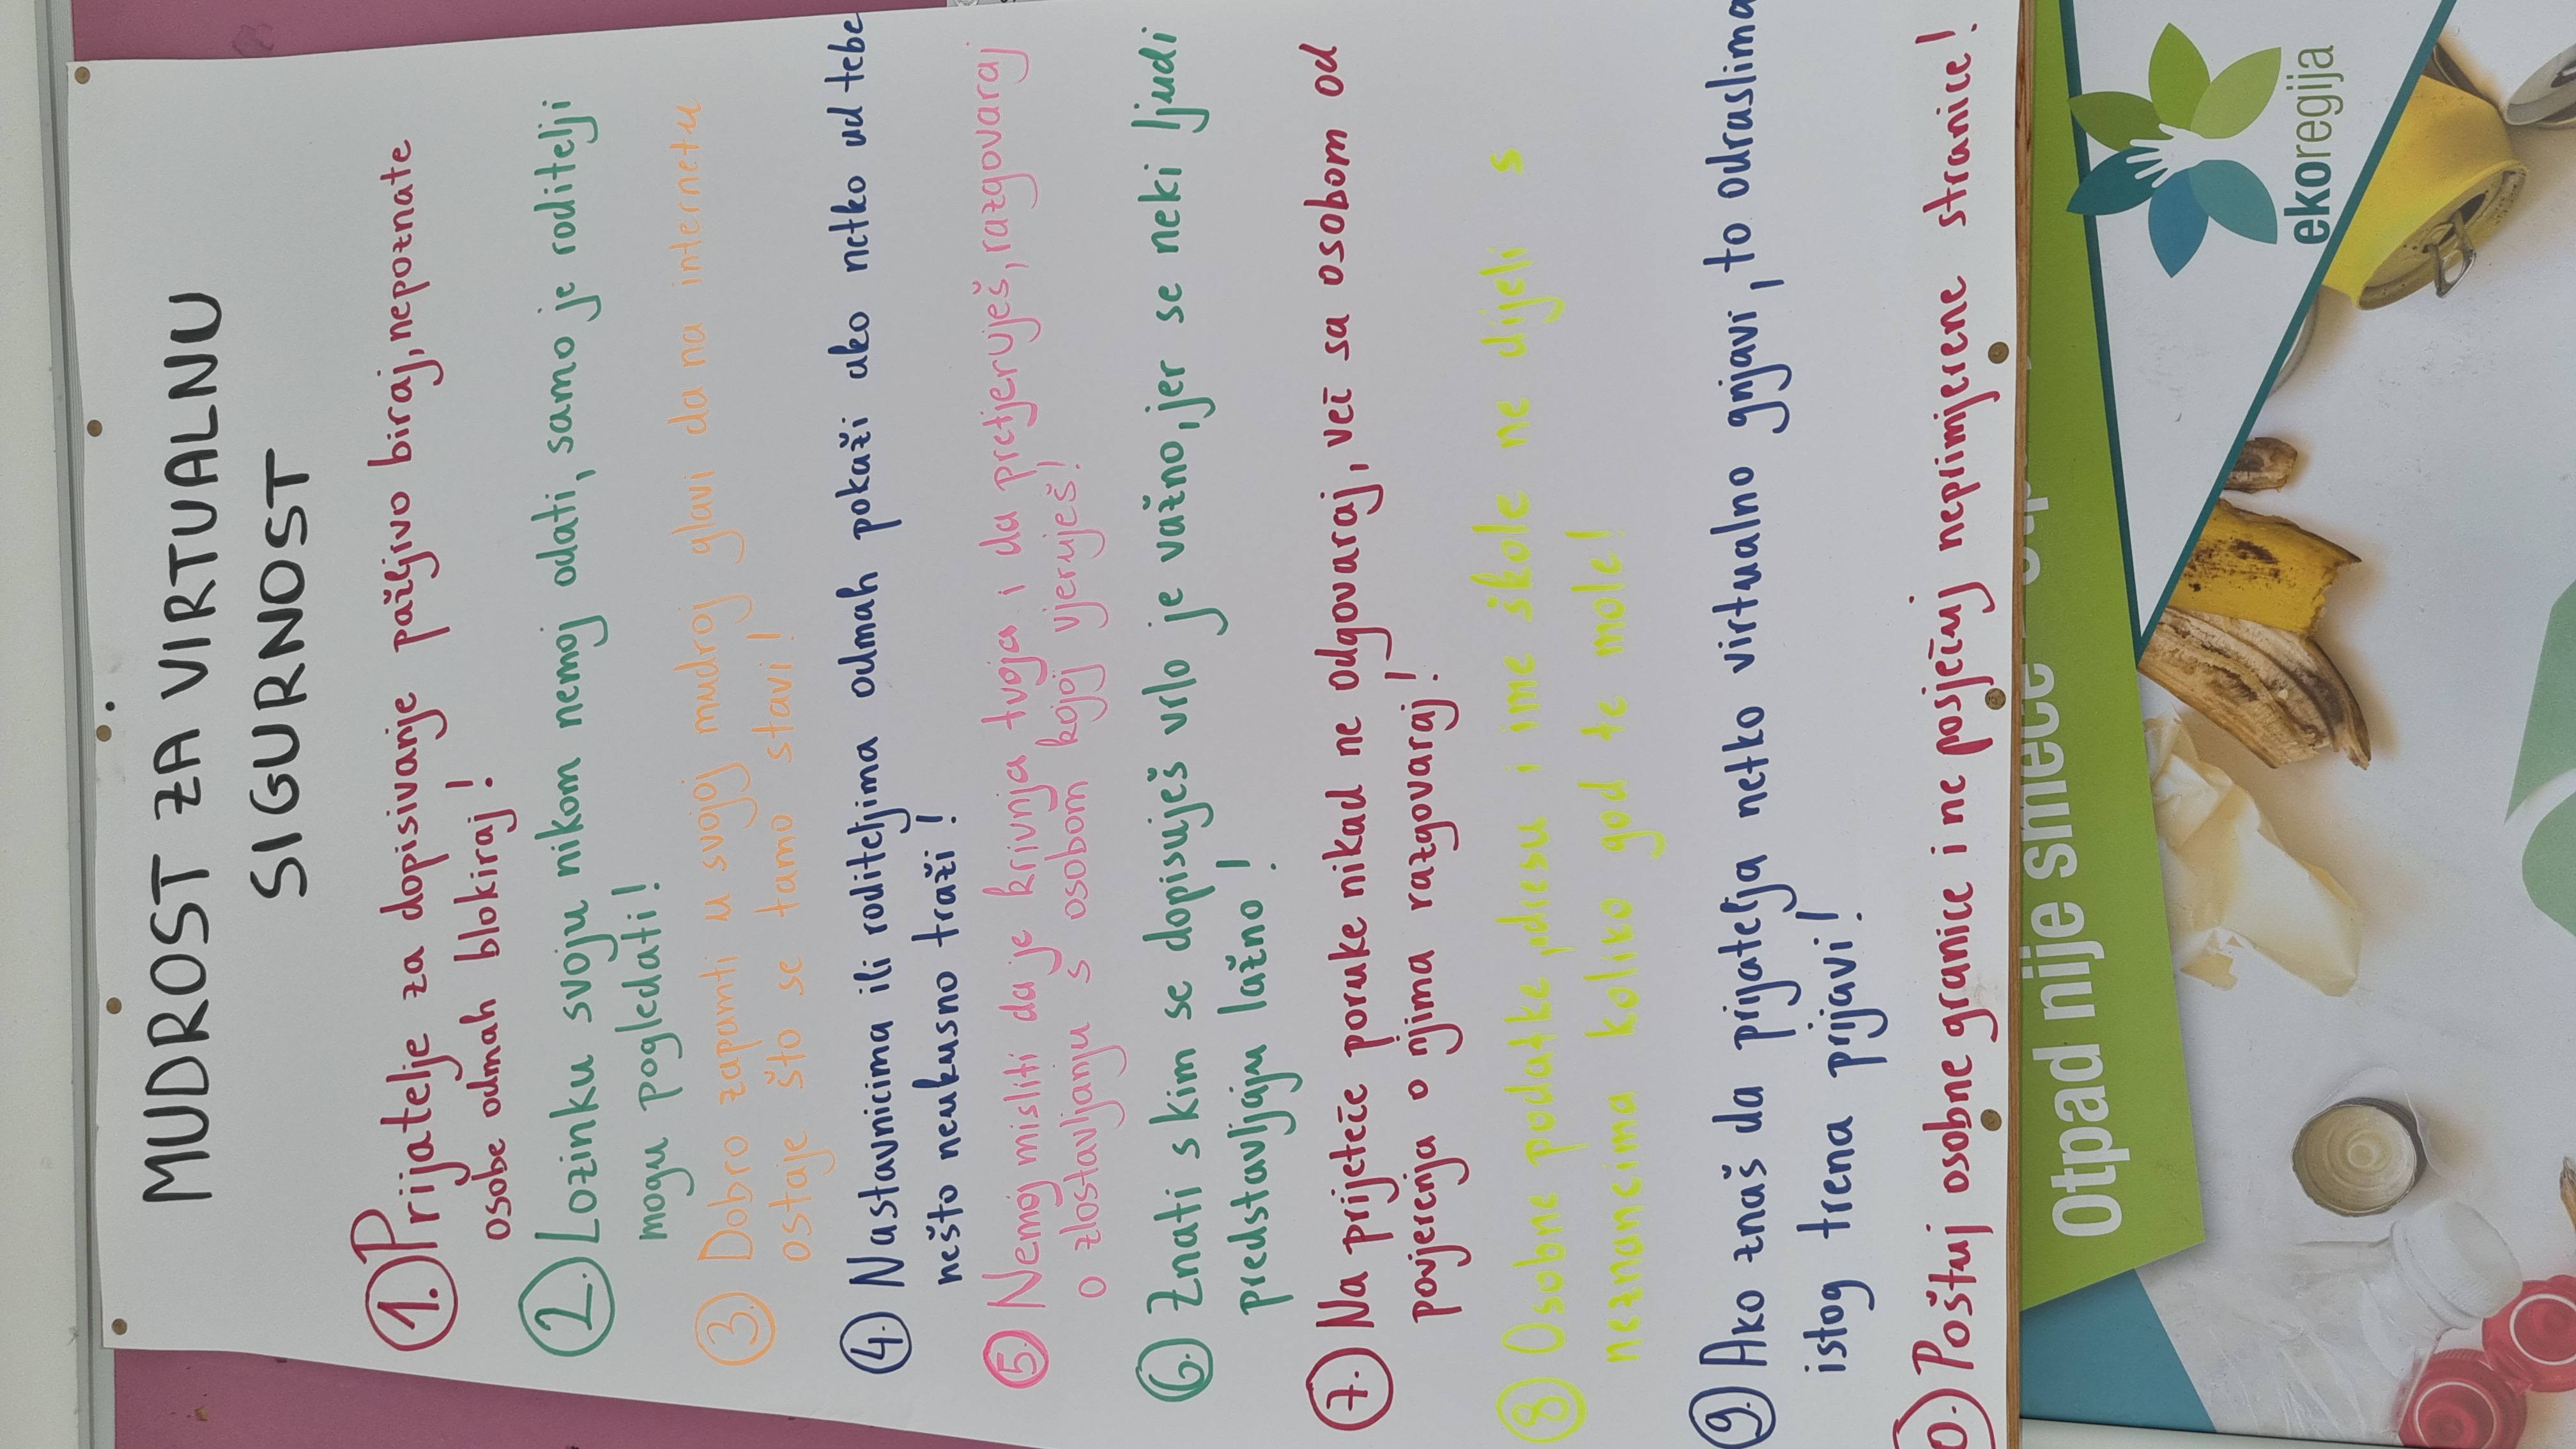 MUDROST ZA VIRTUALNU
SIGURNOST
1. Prijatelje za dopisivanje pažljivo biraj, nepoznate
osobe odmah blokiraj!
2. Lozinku svoju nikom nemoj odati, samo je roditelji
mogu pogledati!
3. Dobro zapamti u svojoj mudroj glavi da na internetu
ostaje što se tamo stavi!
4. Nastavnicima ili roditeljima odmah pokaži ako netko od tebe
nešto neukusno traži!
5. Nemoj misliti da je krivnja tvoja i da pretjeruješ, razgovaraj
o zlostavljanju s osobom kojoj vjeruješ!
6. Znati s kim se dopisuješ vrlo je važno, jer se neki ljudi
predstavljaju lažno!
7. Na prijeteće poruke nikad ne odgovaraj, već sa osobom od
povjerenja o njima razgovaraj!
8 Osobne podatke, adresu i ime škole ne dijeli s
neznancima koliko god te mole!
9. Ako znaš da prijatelja netko virtualno gnjavi, to odraslima
istog trena prijavi!
0. Poštuj osobne granice i ne posjećuj neprimjerene stranice!
Otpad nije smeće
ekoregija